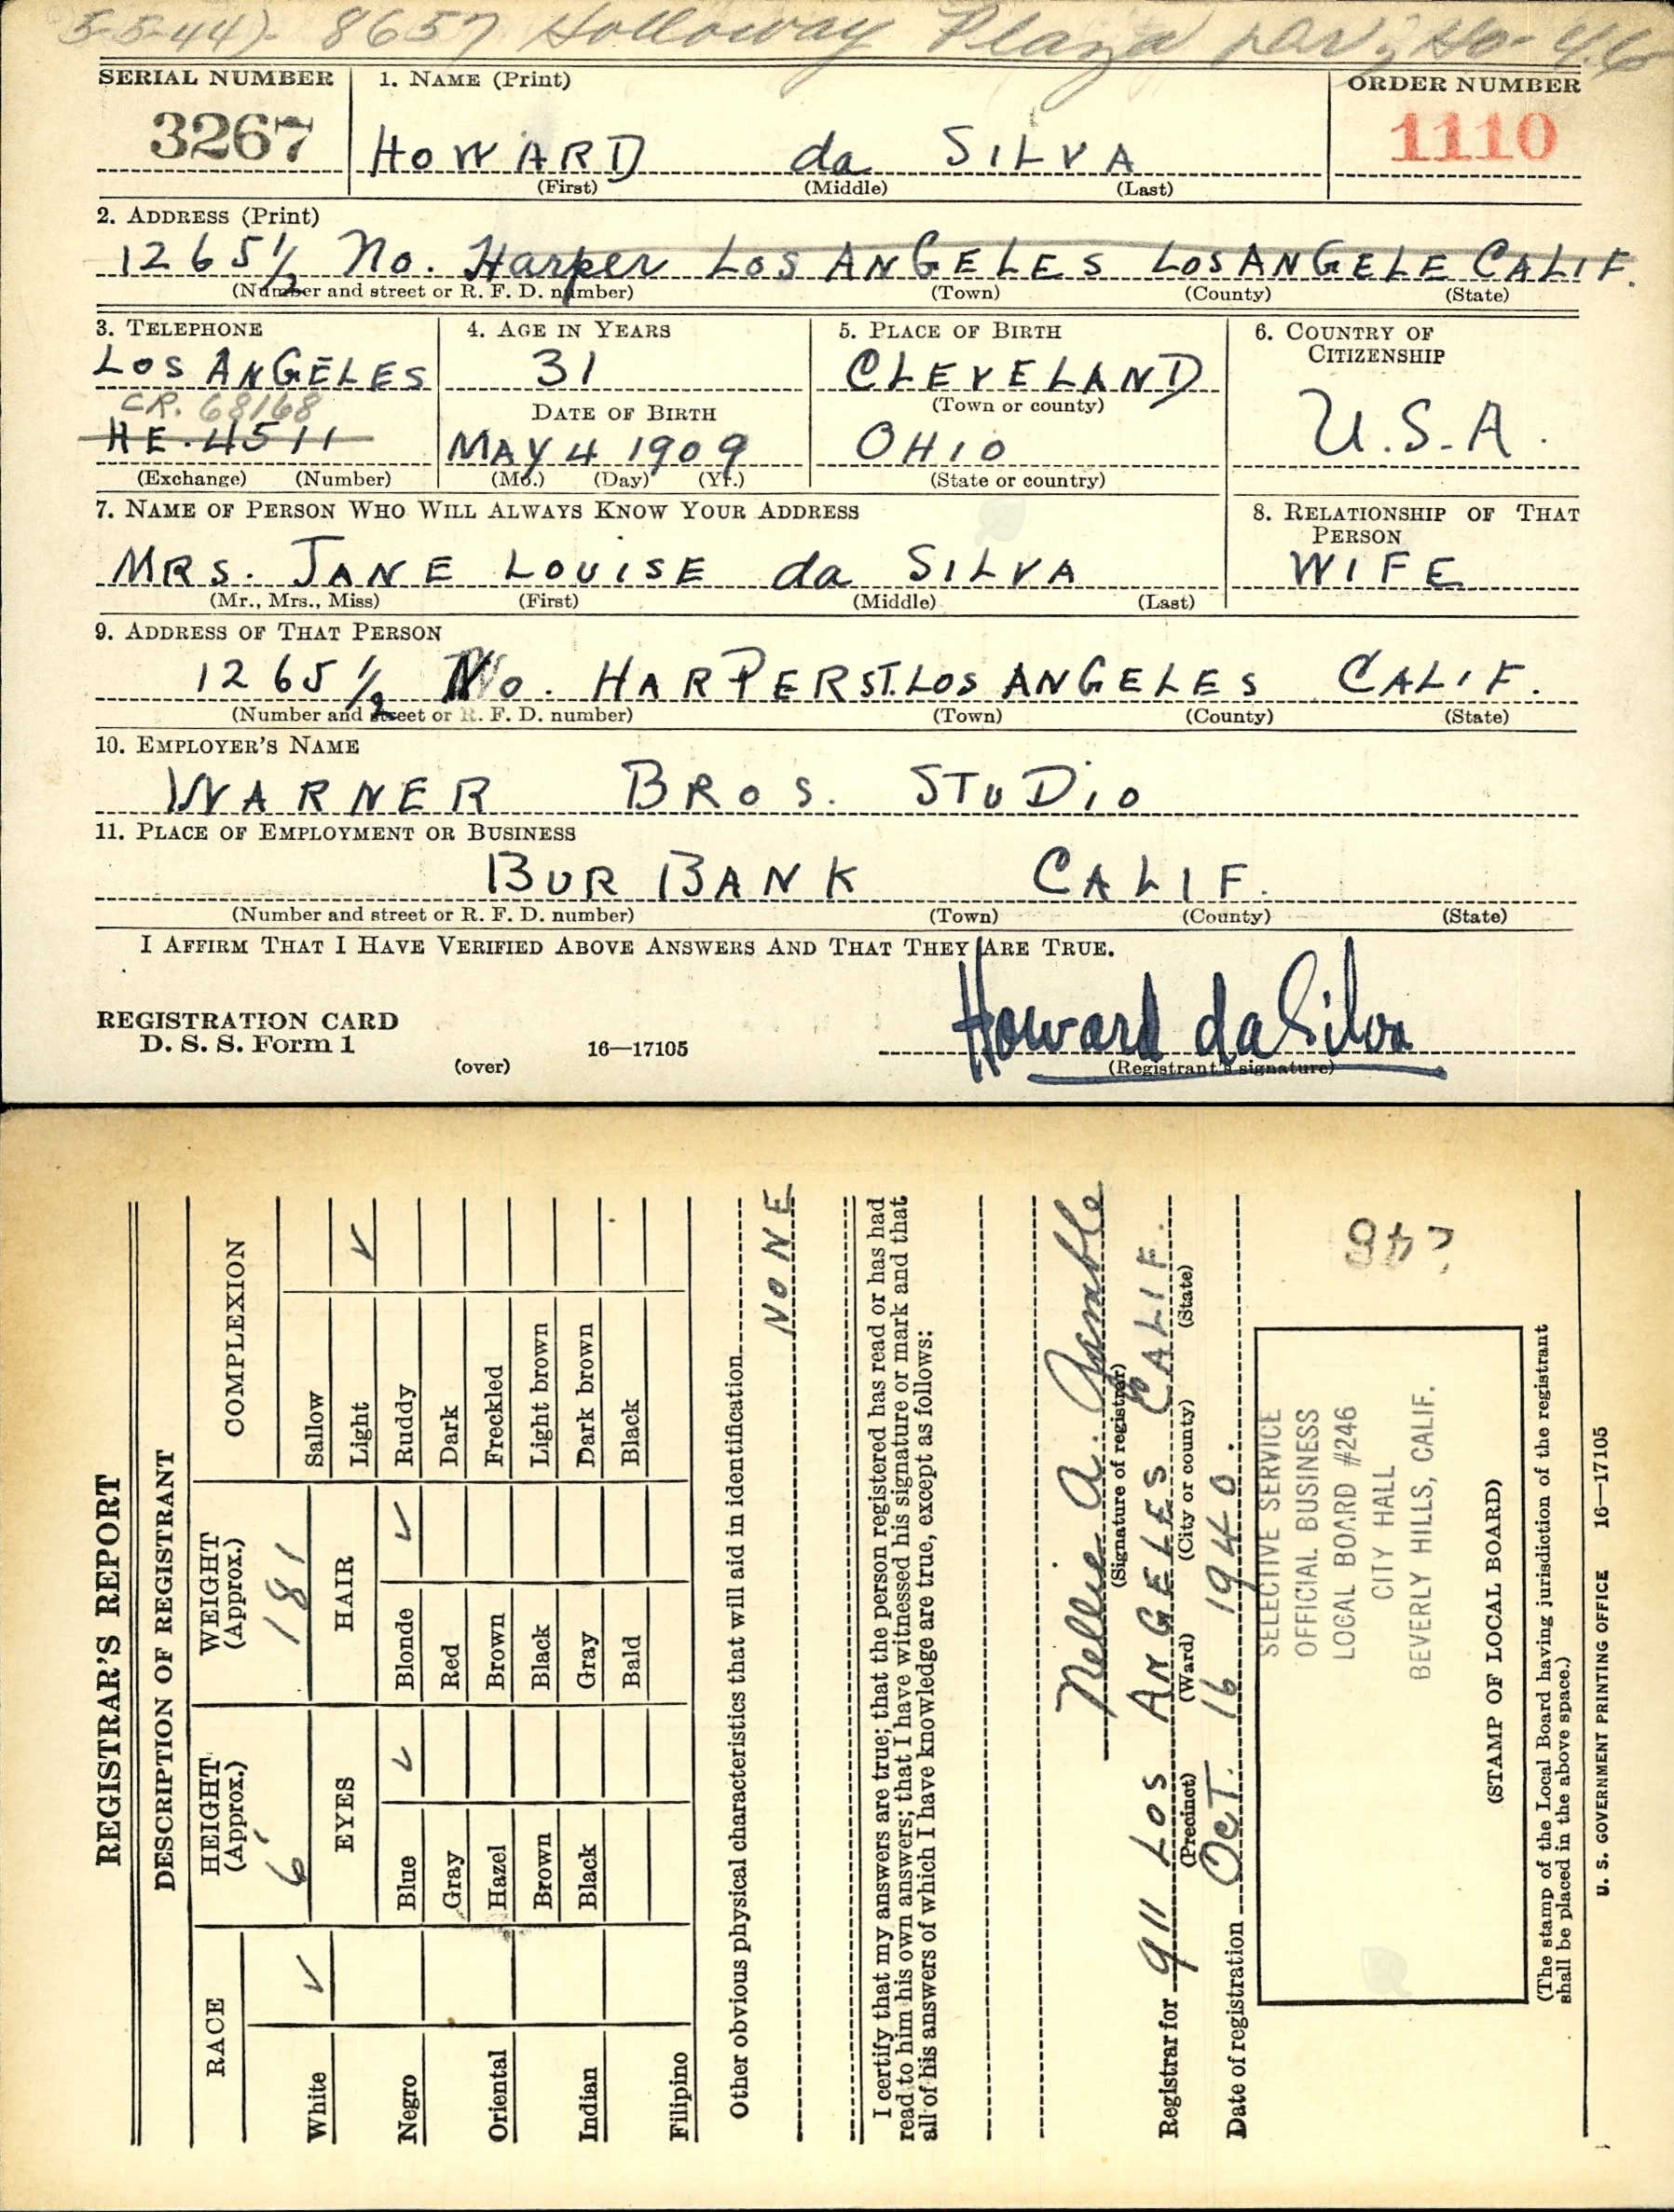 5-5-44). 8657 Holloway Plaza
SERIAL NUMBER
1. NAME (Print)
ORDER NUMBER
3267
HOWARD da SILVA
1110
(First) (Middle) (Last)
2. ADDRESS (Print)
1265½ No. Harper LOS ANGELES LOS ANGELE CALIF.
(Number and street or R. F. D. number) (Town) (County) (State)
3. TELEPHONE
LOS ANGELES
CR. 68168
HE. 4511
(Exchange) (Number)
4. AGE IN YEARS
31
DATE OF BIRTH
MAY 4 1909
(Mo.) (Day) (Yr.)
5. PLACE OF BIRTH
CLEVELAND
(Town or county)
OHIO
(State or country)
6. COUNTRY OF
CITIZENSHIP
U.S.A.
7. NAME OF PERSON WHO WILL ALWAYS KNOW YOUR ADDRESS
MRS. JANE LOUISE da SILVA
(Mr., Mrs., Miss) (First) (Middle) (Last)
8. RELATIONSHIP OF THAT
PERSON
WIFE
9. ADDRESS OF THAT PERSON
1265½ No. HARPER ST. LOS ANGELES CALIF.
(Number and street or R. F. D. number) (Town) (County) (State)
10. EMPLOYER'S NAME
WARNER BROS. STUDIO
11. PLACE OF EMPLOYMENT OR BUSINESS
BURBANK CALIF.
(Number and street or R. F. D. number) (Town) (County) (State)
I AFFIRM THAT I HAVE VERIFIED ABOVE ANSWERS AND THAT THEY ARE TRUE.
Howard da Silva
(Registrant's signature)
REGISTRATION CARD
D. S. S. Form 1
(over)
16—17105
REGISTRAR'S REPORT
DESCRIPTION OF REGISTRANT
RACE
White ✓
Negro
Oriental
Indian
Filipino
HEIGHT
(Approx.)
6'
EYES
Blue ✓
Gray
Hazel
Brown
Black
WEIGHT
(Approx.)
181
HAIR
Blonde ✓
Red
Brown
Black
Gray
Bald
COMPLEXION
Sallow
Light ✓
Ruddy
Dark
Freckled
Light brown
Dark brown
Black
Other obvious physical characteristics that will aid in identification
NONE
I certify that my answers are true; that the person registered has read or has had
read to him his own answers; that I have witnessed his signature or mark and that
all of his answers of which I have knowledge are true, except as follows:
Nellie A. Gamble
(Signature of registrar)
Registrar for 911 LOS ANGELES CALIF.
(Precinct) (Ward) (City or county) (State)
Date of registration OCT. 16 1940.
SELECTIVE SERVICE
OFFICIAL BUSINESS
LOCAL BOARD #246
CITY HALL
BEVERLY HILLS, CALIF.
(STAMP OF LOCAL BOARD)
(The stamp of the Local Board having jurisdiction of the registrant
shall be placed in the above space.)
U. S. GOVERNMENT PRINTING OFFICE 16—17105